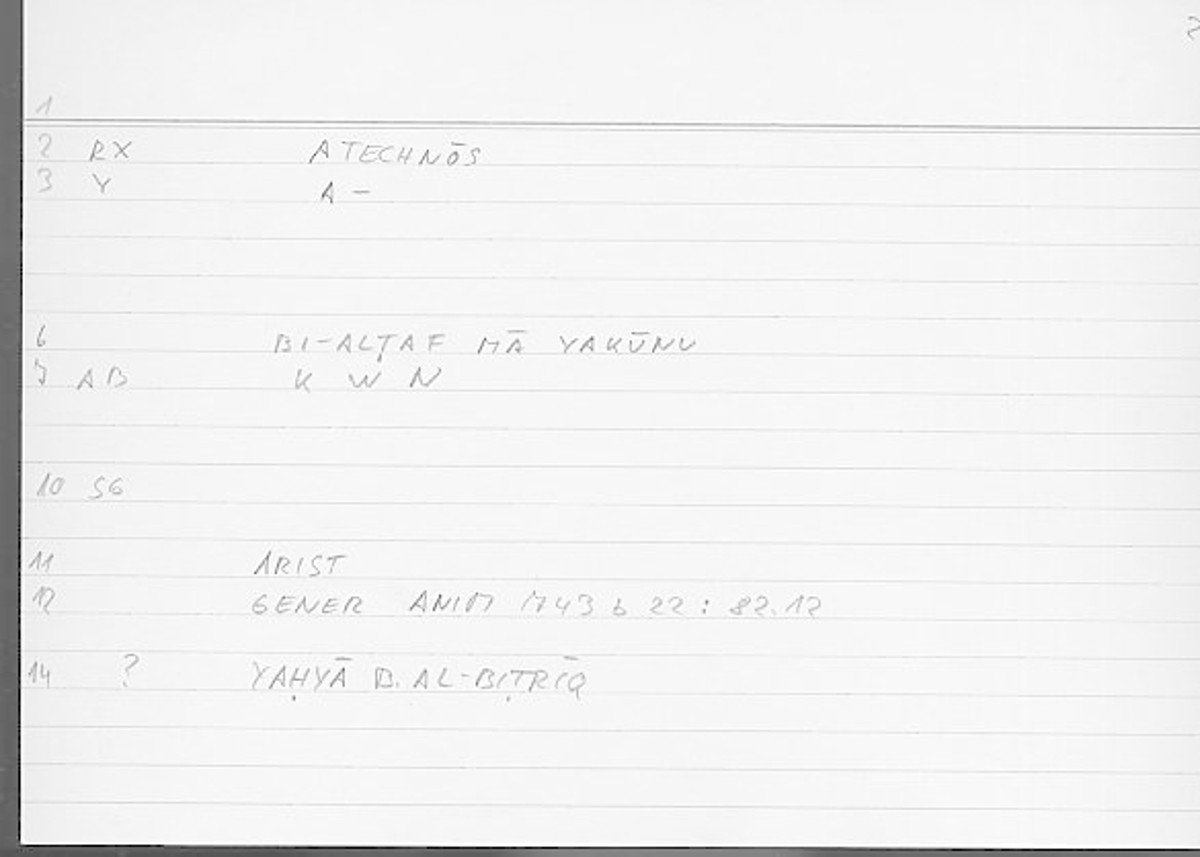 2
1
2 RX ATECHNŌS
3 Y A –
6 BI-ALṬAF MĀ YAKŪNU
7 AB K W N
10 SG
11 ARIST
12 GENER ANIM 743 b 22 : 82.12
14 ? YAḤYĀ B. AL-BIṬRĪQ